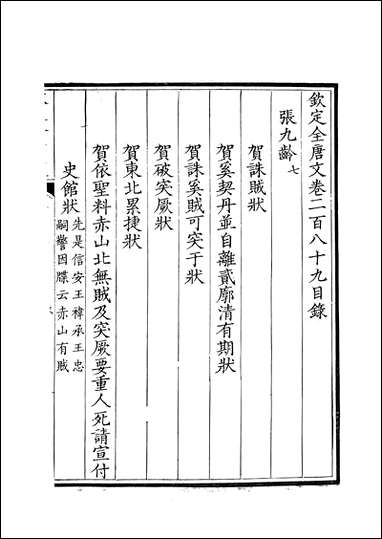 欽定全唐文卷二百八十九目錄
張九齡七
賀誅賊狀
賀奚契丹並自離貳廓清有期狀
賀誅奚賊可突于狀
賀破突厥狀
賀東北累捷狀
賀依聖料赤山北無賊及突厥要重人死請宣付
史館狀先是信安王褘承王忠
嗣警因牒云赤山有賊